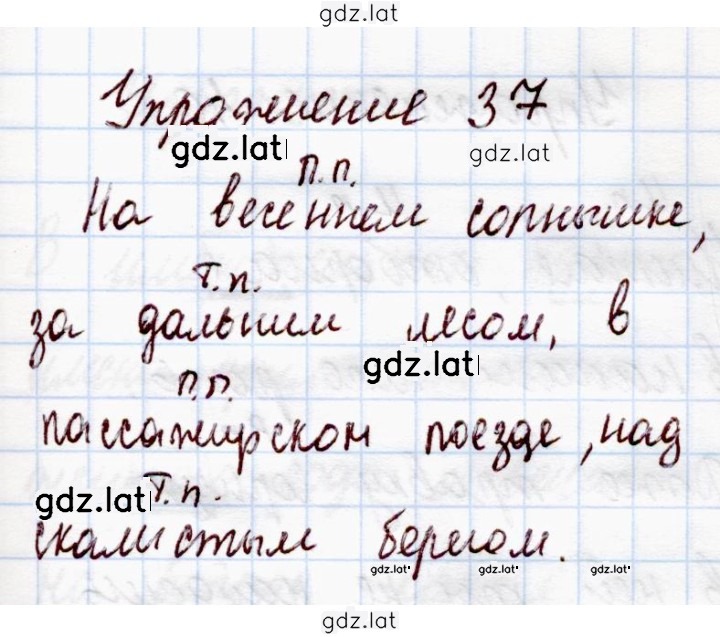 gdz.lat
Упражнение 37
gdz.lat gdz.lat
п.п.
На весеннем солнышке,
т.п.
за дальним лесом, в
gdz.lat
п.п.
пассажирском поезде, над
gdz.lat т.п.
скалистым берегом.
gdz.lat gdz.lat gdz.lat
gdz.lat